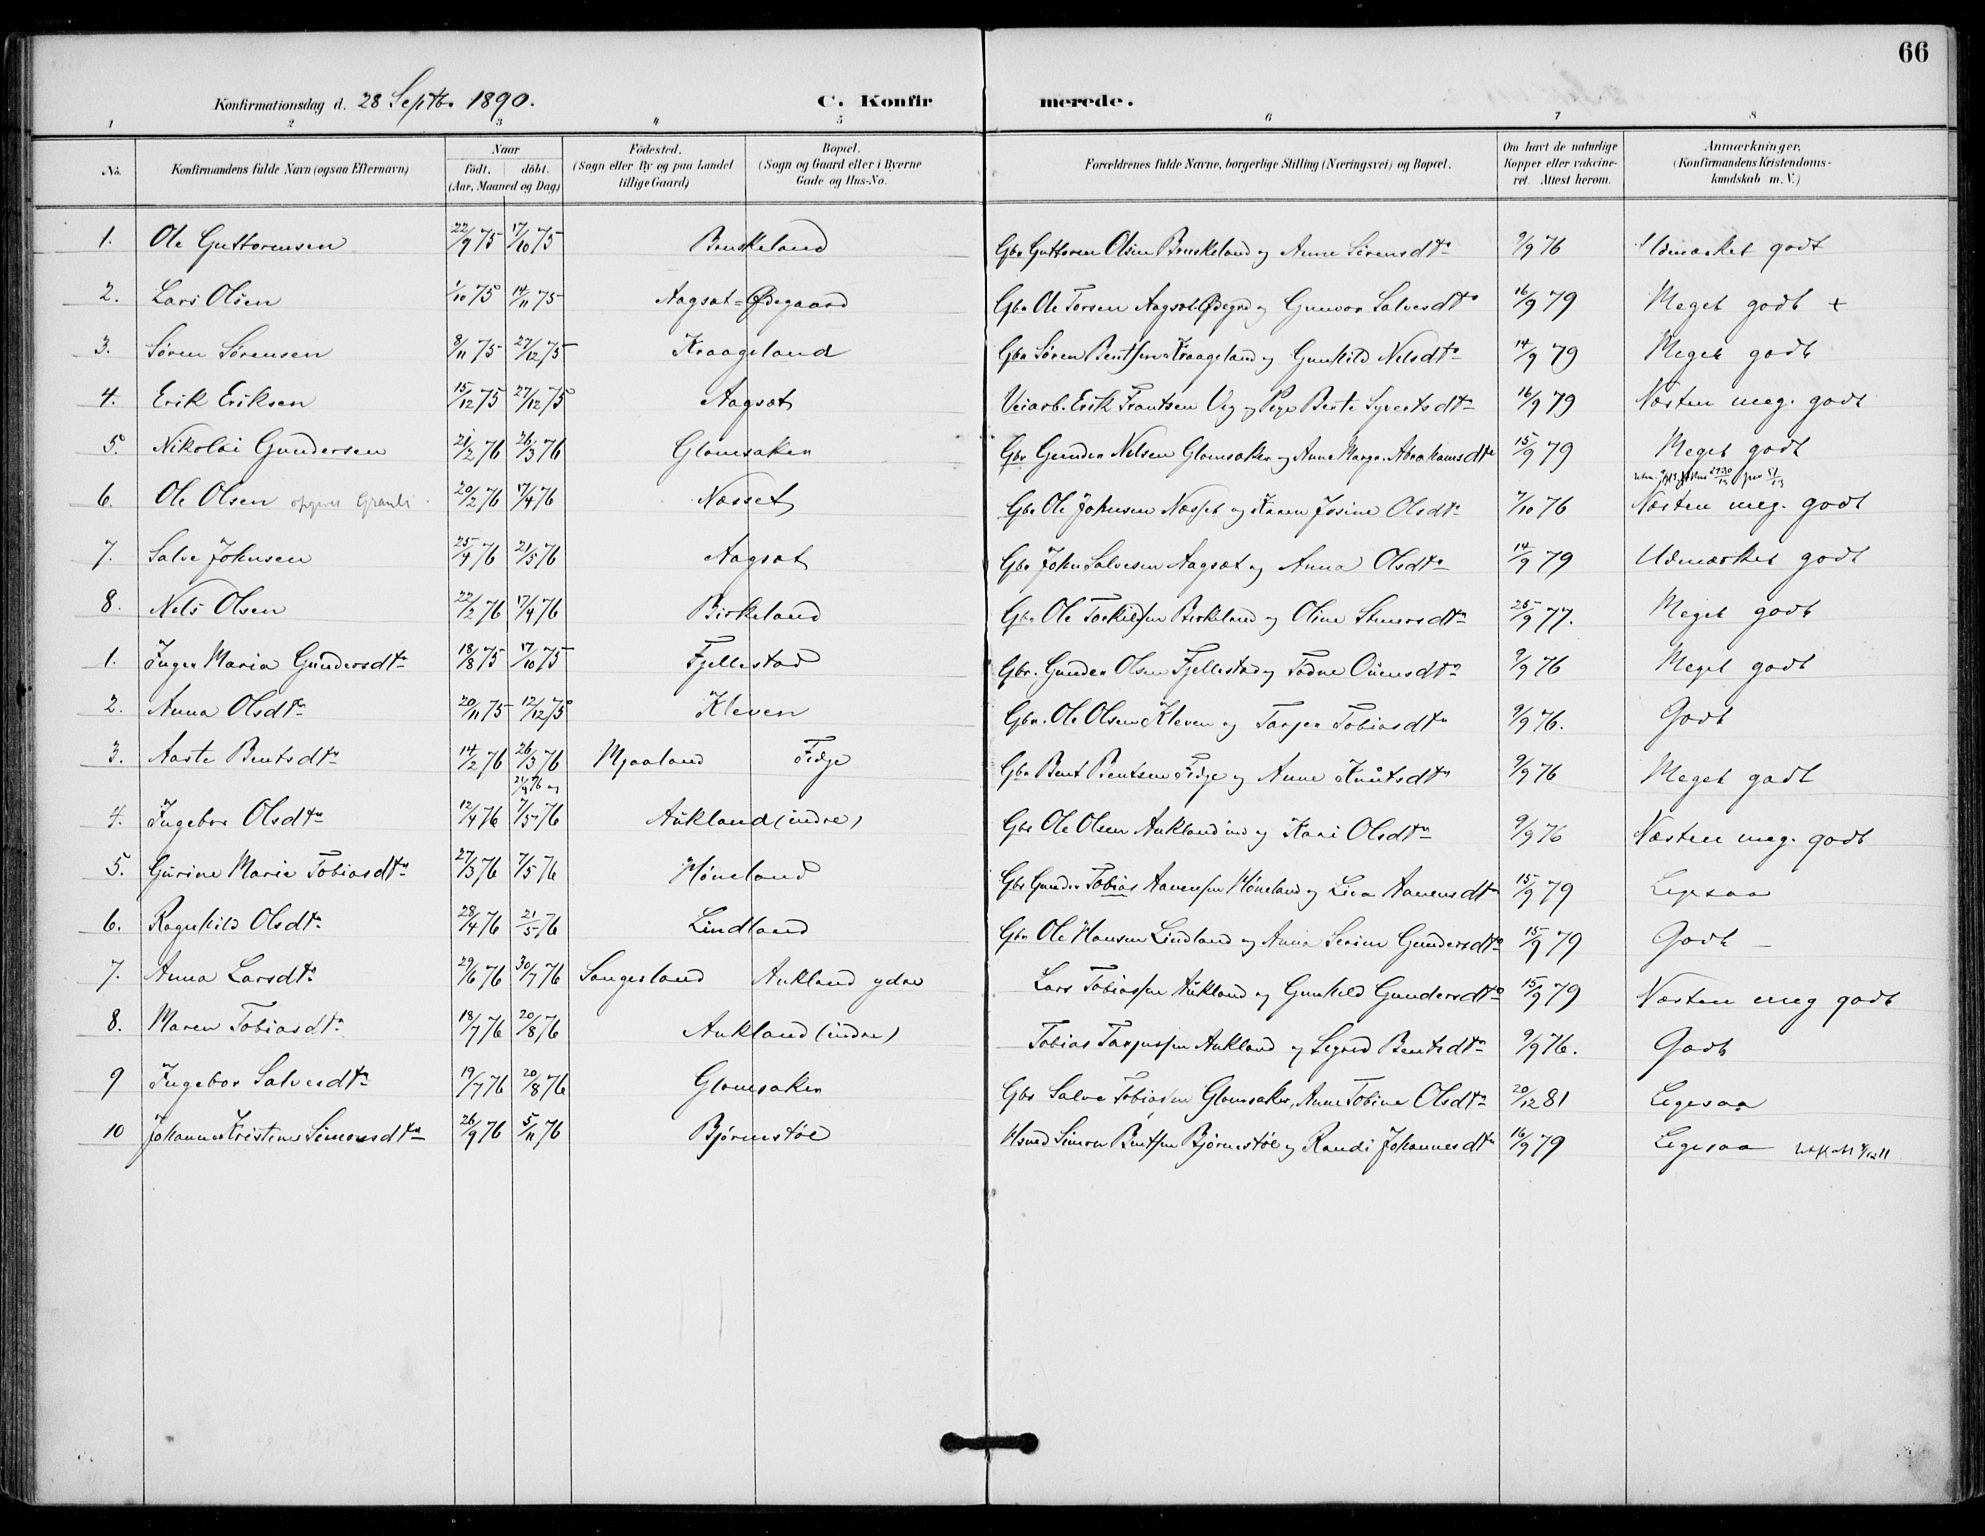 66
Konfirmationsdag d. 28 Septb. 1890. C. Konfirmerede.
1 2 3 4 5 6 7 8
No. Konfirmandens fulde Navn (ogsaa Efternavn) Naar födt. döbt. (Aar, Maaned og Dag) Födested. (Sogn eller By og paa Landet tillige Gaard) Bopæl. (Sogn og Gaard eller i Byerne Gade og Hus-No. Forældrenes fulde Navne, borgerlige Stilling (Næringsvei) og Bopæl. Om havt de naturlige Kopper eller vakcineret. Attest herom. Anmærkninger. (Konfirmandens Kristendomskundskab m. V.)
1. Ole Guttormsen 22/9 75 17/10 75 Bruskeland Gbr Guttorm Olsen Bruskeland og Anne Sørensdtr 9/9 76 Udmærket godt
2. Lars Olsen 1/10 75 14/11 75 Aagsæt-Ødegaard Gbr Ole Torsen Aagsæt-Ødegrd og Gunvor Salvesdtr 16/9 79 Meget godt +
3. Søren Sørensen 8/11 75 27/12 75 Kraageland Gbr Søren Bentsen Kraageland og Gunhild Nelsdtr 14/9 79 Meget godt
4. Erik Eriksen 15/12 75 27/12 75 Aagsæt Veiarb. Erik Frantsen og Pige Berte Syvertsdtr 16/9 79 Næsten meg. godt
5. Nikolai Gundersen 21/2 76 26/3 76 Glomsaker Gbr Gunder Nelsen Glomsaker og Anne Margr. Abrahamsdtr 15/9 79 Meget godt
6. Ole Olsen opgives 20/2 76 17/4 76 Næsset Gbr Ole Johnsen Næsset og Karen Josine Olsdtr 7/10 76 Næsten meg. godt
7. Salve Johnsen 25/4 76 21/5 76 Aagsæt Gbr John Salvesen Aagsæt og Anna Olsdtr 14/9 79 Udmærket godt
8. Nels Olsen 22/2 76 17/4 76 Birkeland Gbr Ole Torkildsen Birkeland og Oline 25/9 77. Meget godt
1. Inger Maria Gundersdtr 18/8 75 17/10 75 Fjellestad Gbr. Gunder Olsen Fjellestad og Todne Ouensdtr 9/9 76 Meget godt
2. Anna Olsdtr 20/11 75 12/12 75 Kleven Gbr. Ole Olsen Kleven og Tarjer Tobiasdtr 9/9 76. Godt
3. Aaste Bentsdtr 14/2 76 26/3 76 Mjaaland Fidje Gbr Bent Bentsen Fidje og Anne Knutsdtr 9/9 76 Meget godt
4. Ingebor Olsdtr 12/4 76 21/4 76 og 7/5 76 Aukland (indre) Gbr Ole Olsen Aukland ind og Kari Olsdtr 9/9 76 Næsten meg. godt
5. Gurine Marie Tobiasdtr 27/3 76 7/5 76 Høneland Gbr Gunder Tobias Aanensen Høneland og Liva Aanensdtr 15/9 79 Ligesaa
6. Ragnhild Olsdtr 28/4 76 21/5 76 Lindland Gbr Ole Hansen Lindland og Anna Serine Gundersdtr 15/9 79 Godt
7. Anna Larsdtr 29/6 76 30/7 76 Sangesland Aukland ydre Lars Tobiassen Aukland og Gunhild Gundersdtr 15/9 79 Næsten meg godt
8. Maren Tobiasdtr 18/7 76 20/8 76 Aukland (indre) Tobias Tarjussen Aukland og Sigrid Bentsdtr 9/9 76. Godt
9 Ingebor Salvesdtr 19/7 76 20/8 76 Glomsaker Gbr Salve Tobiassen Glomsaker, Anne Tobine Olsdtr 20/12 81 Ligesaa
10 Johanne Kristine Simonsdtr 26/9 76 5/11 76 Bjørnstøl Husmd Simon Bentsen Bjørnestøl og Randi Johannesdtr 16/9 79 Ligesaa